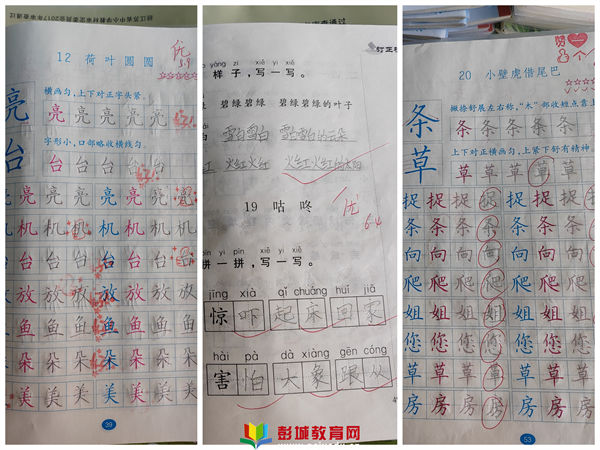 12 荷叶圆圆
优
5.9
亮
台
横画匀，上下对正字头紧。
亮 亮 亮 亮 亮
字形小，口部略收横线匀。
台 台 台 台 台
亮 亮 亮 亮 亮 亮 亮
机 机 机 机 机 机 机
台 台 台 台 台 台 台
放 放 放 放 放 放 放
鱼 鱼 鱼 鱼 鱼 鱼 鱼
朵 朵 朵 朵 朵 朵 朵
美 美 美 美 美 美 美
39
yàng zi xiě yi xiě
样子，写一写。
碧绿 碧绿 碧绿碧绿的叶子
雪白雪白 雪白雪白的云朵
火红火红 火红火红的太阳
19 咕咚
优
6.4
pīn yi pīn xiě yi xiě
拼一拼，写一写。
jīng xià qǐ chuáng huí jiā
惊吓 起床 回家
hài pà dà xiàng gēn cóng
害怕 大象 跟从
20 小壁虎借尾巴
条
草
撇捺舒展左右称，“木”部收短点靠上
条 条 条 条 条
上下对正横画匀，上紧下舒有精神
草 草 草 草 草
捉 捉 捉 捉 捉 捉 捉
条 条 条 条 条 条 条
向 向 向 向 向 向 向
爬 爬 爬 爬 爬 爬 爬
姐 姐 姐 姐 姐 姐 姐
您 您 您 您 您 您 您
草 草 草 草 草 草 草
房 房 房 房 房 房 房
53
彭城教育网